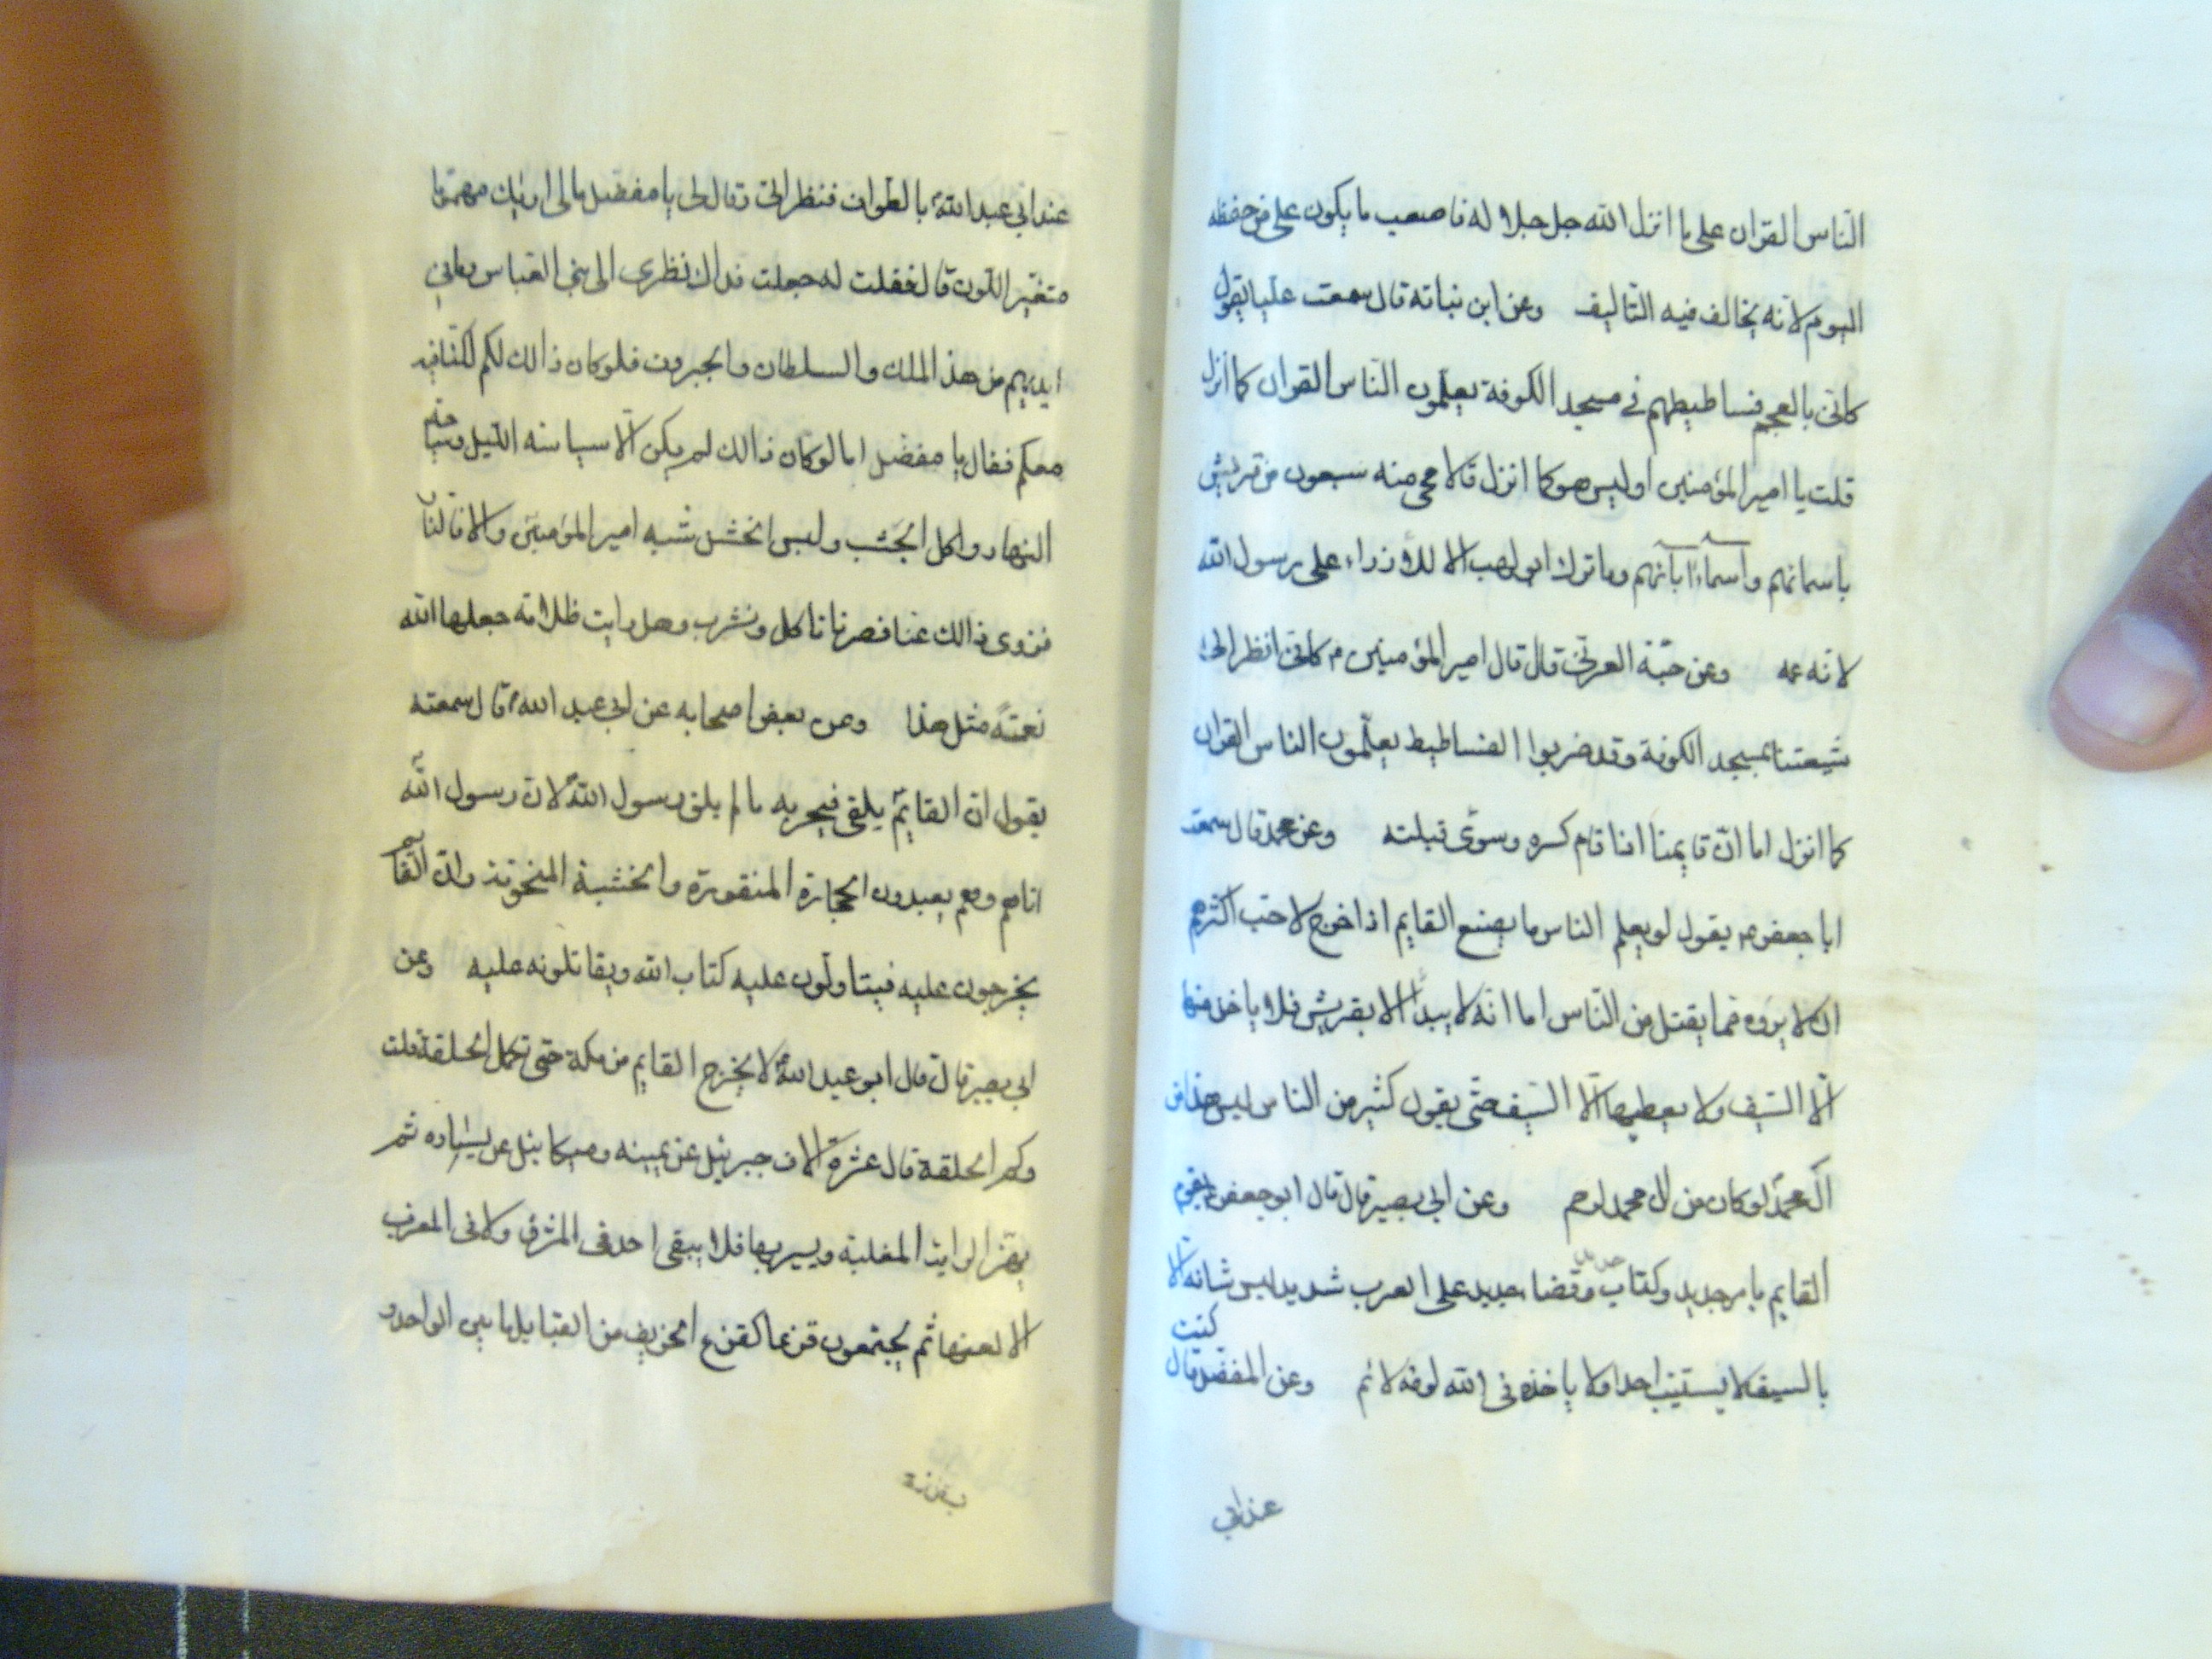 الناس القران على ما انزل الله جل جلاله فاصعب ما يكون على من حفظه
اليوم لانه يخالف فيه التاليف وعن ابن نباته قال سمعت عليا يقول
كاني بالعجم فساطيطهم في مسجد الكوفة يعلمون الناس القران كما انزل
قلت يا امير المؤمنين اوليس هو كما انزل قال لا محى منه سبعون من قريش
باسمائهم واسماء ابائهم وما ترك ابو لهب الا للازراء على رسول الله
لانه عمه وعن حبة العرني قال قال امير المؤمنين م كاني انظر الى
شيعتنا بمسجد الكوفة وقد ضربوا الفساطيط يعلمون الناس القران
كما انزل اما ان قايمنا اذا قام كسره وسوى قبلته وعن محمد قال سمعت
ابا جعفر عم يقول لو يعلم الناس ما يصنع القايم اذا خرج لاحب اكثرهم
ان لا يروه مما يقتل من الناس اما انه لا يبدأ الا بقريش فلا ياخذ منها
الا السيف ولا يعطيها الا السيف حتى يقول كثير من الناس ليس هذا من
آل محمد لو كان من ال محمد لرحم وعن ابي بصير قال قال ابو جعفر يقوم
القايم بامر جديد وكتاب جديد وقضاء جديد على العرب شديد ليس شانه الا
بالسيف لا يستتيب احدا ولا ياخذه في الله لومة لائم وعن المفضل قال كنت
عند ابي
عند ابي عبد الله بالطواف فنظر الي وقال لي يا مفضل مالي اريك مهمتما
متغير اللون قال فقلت له جعلت فداك نظري الى بني العباس وما في
ايديهم من هذ الملك والسلطان والجبروت فلو كان ذالك لكم لكنا فيه
معكم فقال يا مفضل اما لو كان ذالك لم يكن الا سياسة الليل وسياحة
النهار واكل الجشب ولبس الخشن شبه امير المؤمنين والا فالنار
فزوى ذالك عنا فصرنا ناكل ونشرب وهل رايت ظلامة جعلها الله
نعمة مثل هذا وعن بعض اصحابه عن ابي عبد الله قال سمعته
يقول ان القايم يلقى في حربه ما لم يلق رسول الله لان رسول الله
اتاهم وهم يعبدون الحجارة المنقورة والخشبة المنحوتة وان القايم
يخرجون عليه فيتاولون عليه كتاب الله ويقاتلونه عليه وعن
ابي بصير قال قال ابو عبد الله لا يخرج القايم من مكة حتى تكمل الحلقة قلت
وكم الحلقة قال عشرة الاف جبرئيل عن يمينه وميكائيل عن يساره ثم
يهز الراية المغلبة ويسير بها فلا يبقى احد في المشرق ولا في المغرب
الا لعنها ثم يجتمعون قزعا كقزع الخريف من القبايل ما بين الواحد و